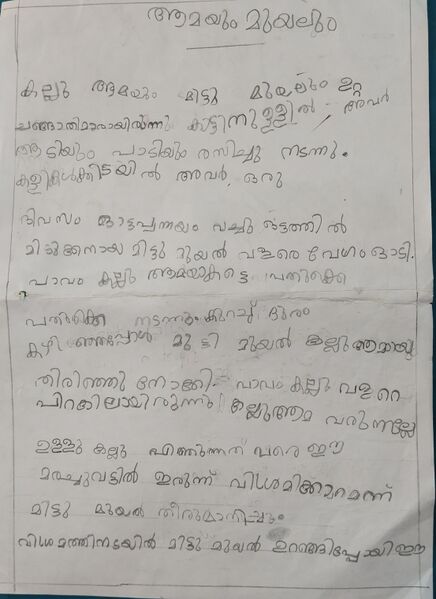 ആമയും മുയലും
കല്ലു ആമയും മിട്ടു മുയലും ഉറ്റ
ചങ്ങാതിമാരായിരുന്നു കാട്ടിനുള്ളിൽ അവർ
ആടിയും പാടിയും രസിച്ചു നടന്നു.
കളികൾക്കിടയിൽ അവർ ഒരു
ദിവസം ഓട്ടപ്പന്തയം വച്ചു ഓട്ടത്തിൽ
മിടുക്കനായ മിട്ടു മുയൽ വളരെ വേഗം ഓടി.
പാവം കല്ലു ആമയാകട്ടെ പതുക്കെ
പതുക്കെ നടന്നു കുറച്ച് ദൂരം
കഴിഞ്ഞപ്പോൾ മുയൽ കല്ലു ആമയെ
തിരിഞ്ഞു നോക്കി. പാവം കല്ലു വളരെ
പിറകിലായിരുന്നു കല്ലു ആമ വരുന്നല്ലേ
ഉള്ളു കല്ലു എത്തുന്നത് വരെ ഈ
മരച്ചുവട്ടിൽ ഇരുന്ന് വിശ്രമിക്കാമെന്ന്
മിട്ടു മുയൽ തീരുമാനിച്ചു
വിശ്രമത്തിനിടയിൽ മിട്ടു മുയൽ ഉറങ്ങിപ്പോയി ഈ